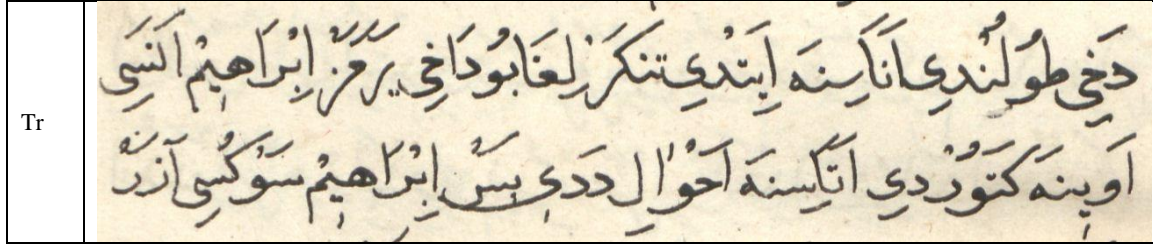 Tr
دَخِى طُولُندِى اَنَاسِنَه اِيتدِى تنكرِلِغَا بُو دَاخِى يَرَمَزْ اِبْرَاهِيمْ اَنَسِى
اَوِينَه كَتَوُرْدِي اَتَاسِنَه اَحْوَال دَدِى بَسْ اِبْرَاهِيمْ سَوْكُسِى آزَرْ